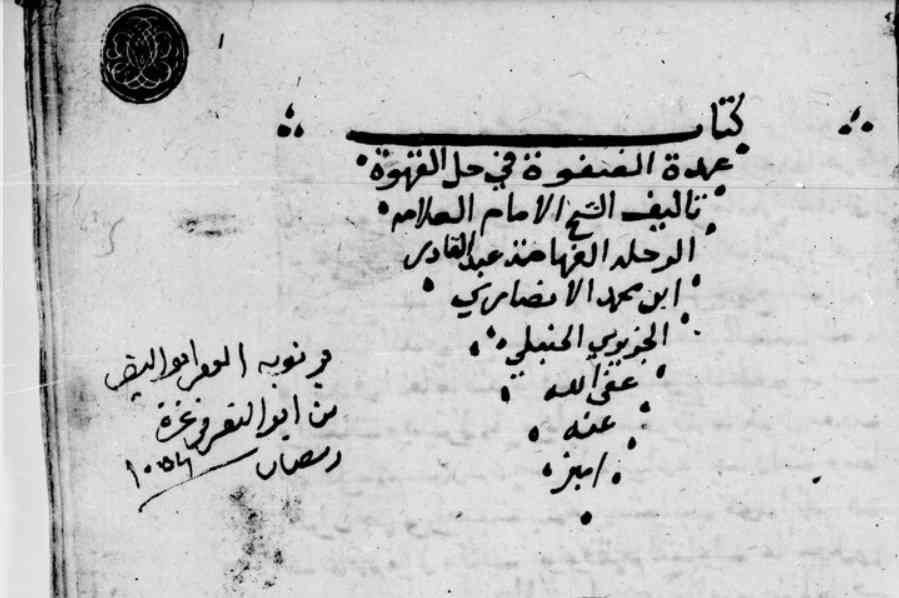 كتاب
عمدة الصفوة في حل القهوة
تاليف الشيخ الامام العلامه
الرحله الفهامه عبد القادر
ابن محمد الانصاري
الجزيري الحنبلي
عفى الله
عنه
امين
من ابو النصر في غرة
رمضان